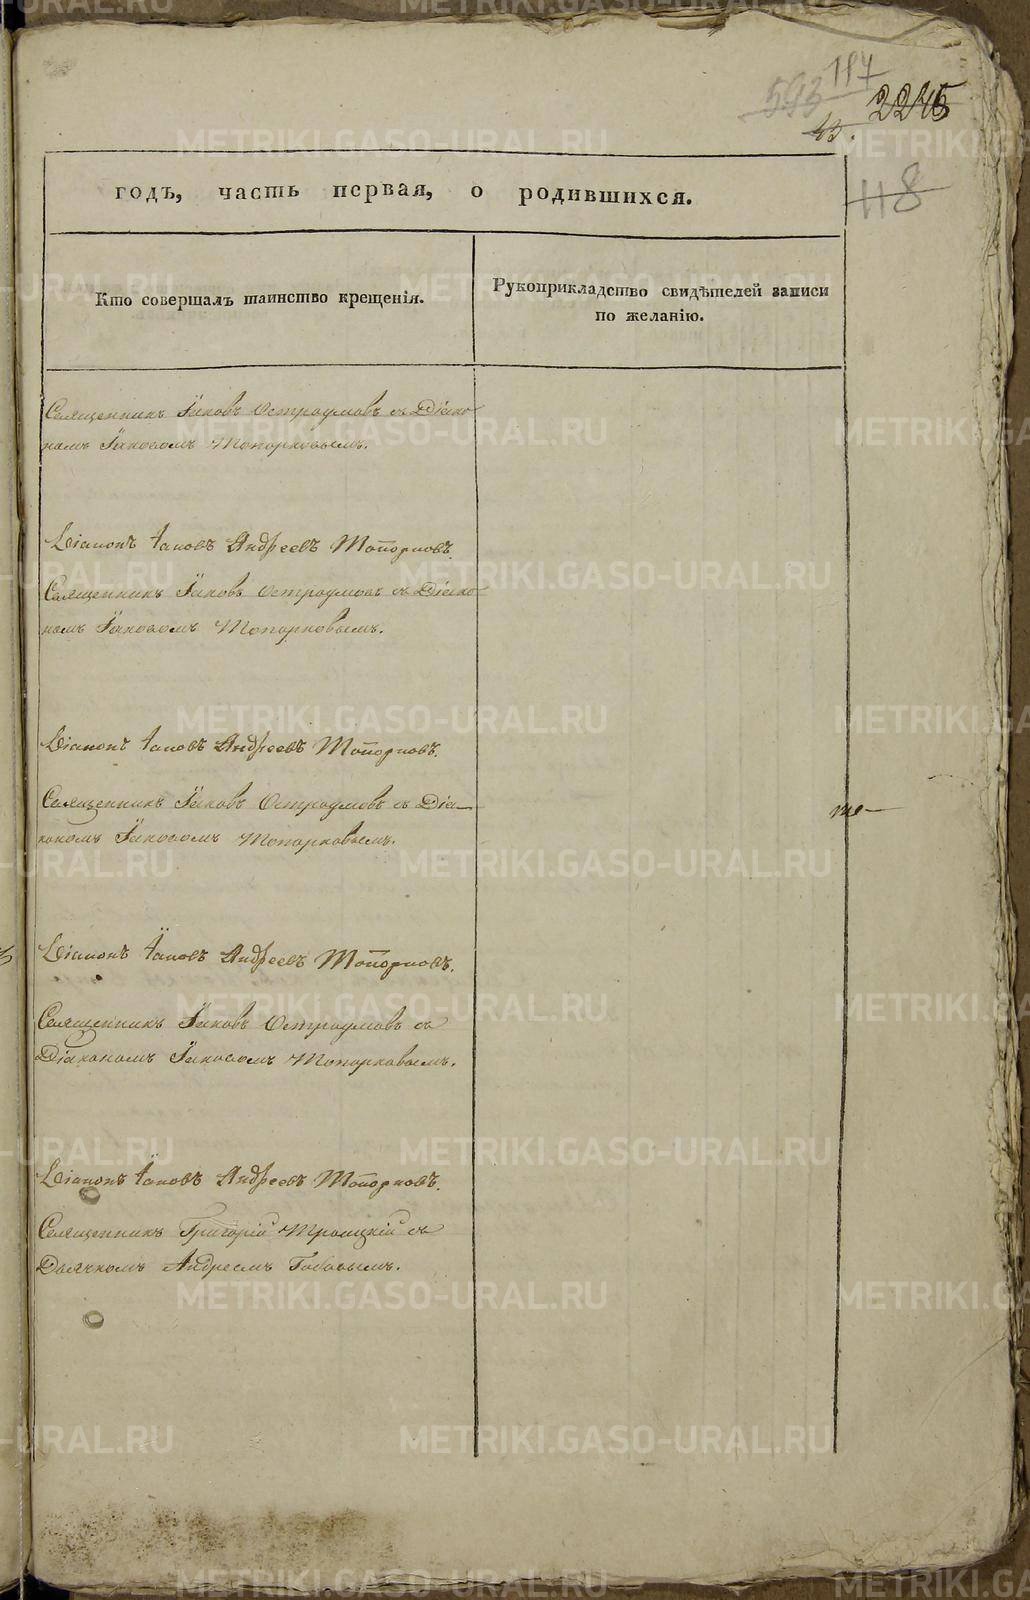 593
117
2246
45.
118
годъ, часть первая, о родившихся.
Кто совершалъ таинство крещенія.
Рукоприкладство свидѣтелей записи
по желанію.
Священникъ Іяковъ Остроумовъ съ Діяко
номъ Іяковомъ Топорковымъ.
Діаконъ Іаковъ Андреевъ Топорковъ.
Священникъ Іяковъ Остроумовъ съ Діяко
номъ Іяковомъ Топорковымъ.
Діаконъ Іаковъ Андреевъ Топорковъ.
Священникъ Іяковъ Остроумовъ съ Дія-
кономъ Іяковомъ Топорковымъ.
те-
Діаконъ Іаковъ Андреевъ Топорковъ.
Священникъ Іяковъ Остроумовъ съ
Діякономъ Іяковомъ Топорковымъ.
Діаконъ Іаковъ Андреевъ Топорковъ.
Священникъ Григорій Троицкій съ
Дьячкомъ Андреемъ
METRIKI.GASO-URAL.RU